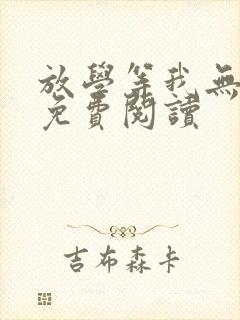 放學等我無
免費閱讀
吉布森卡